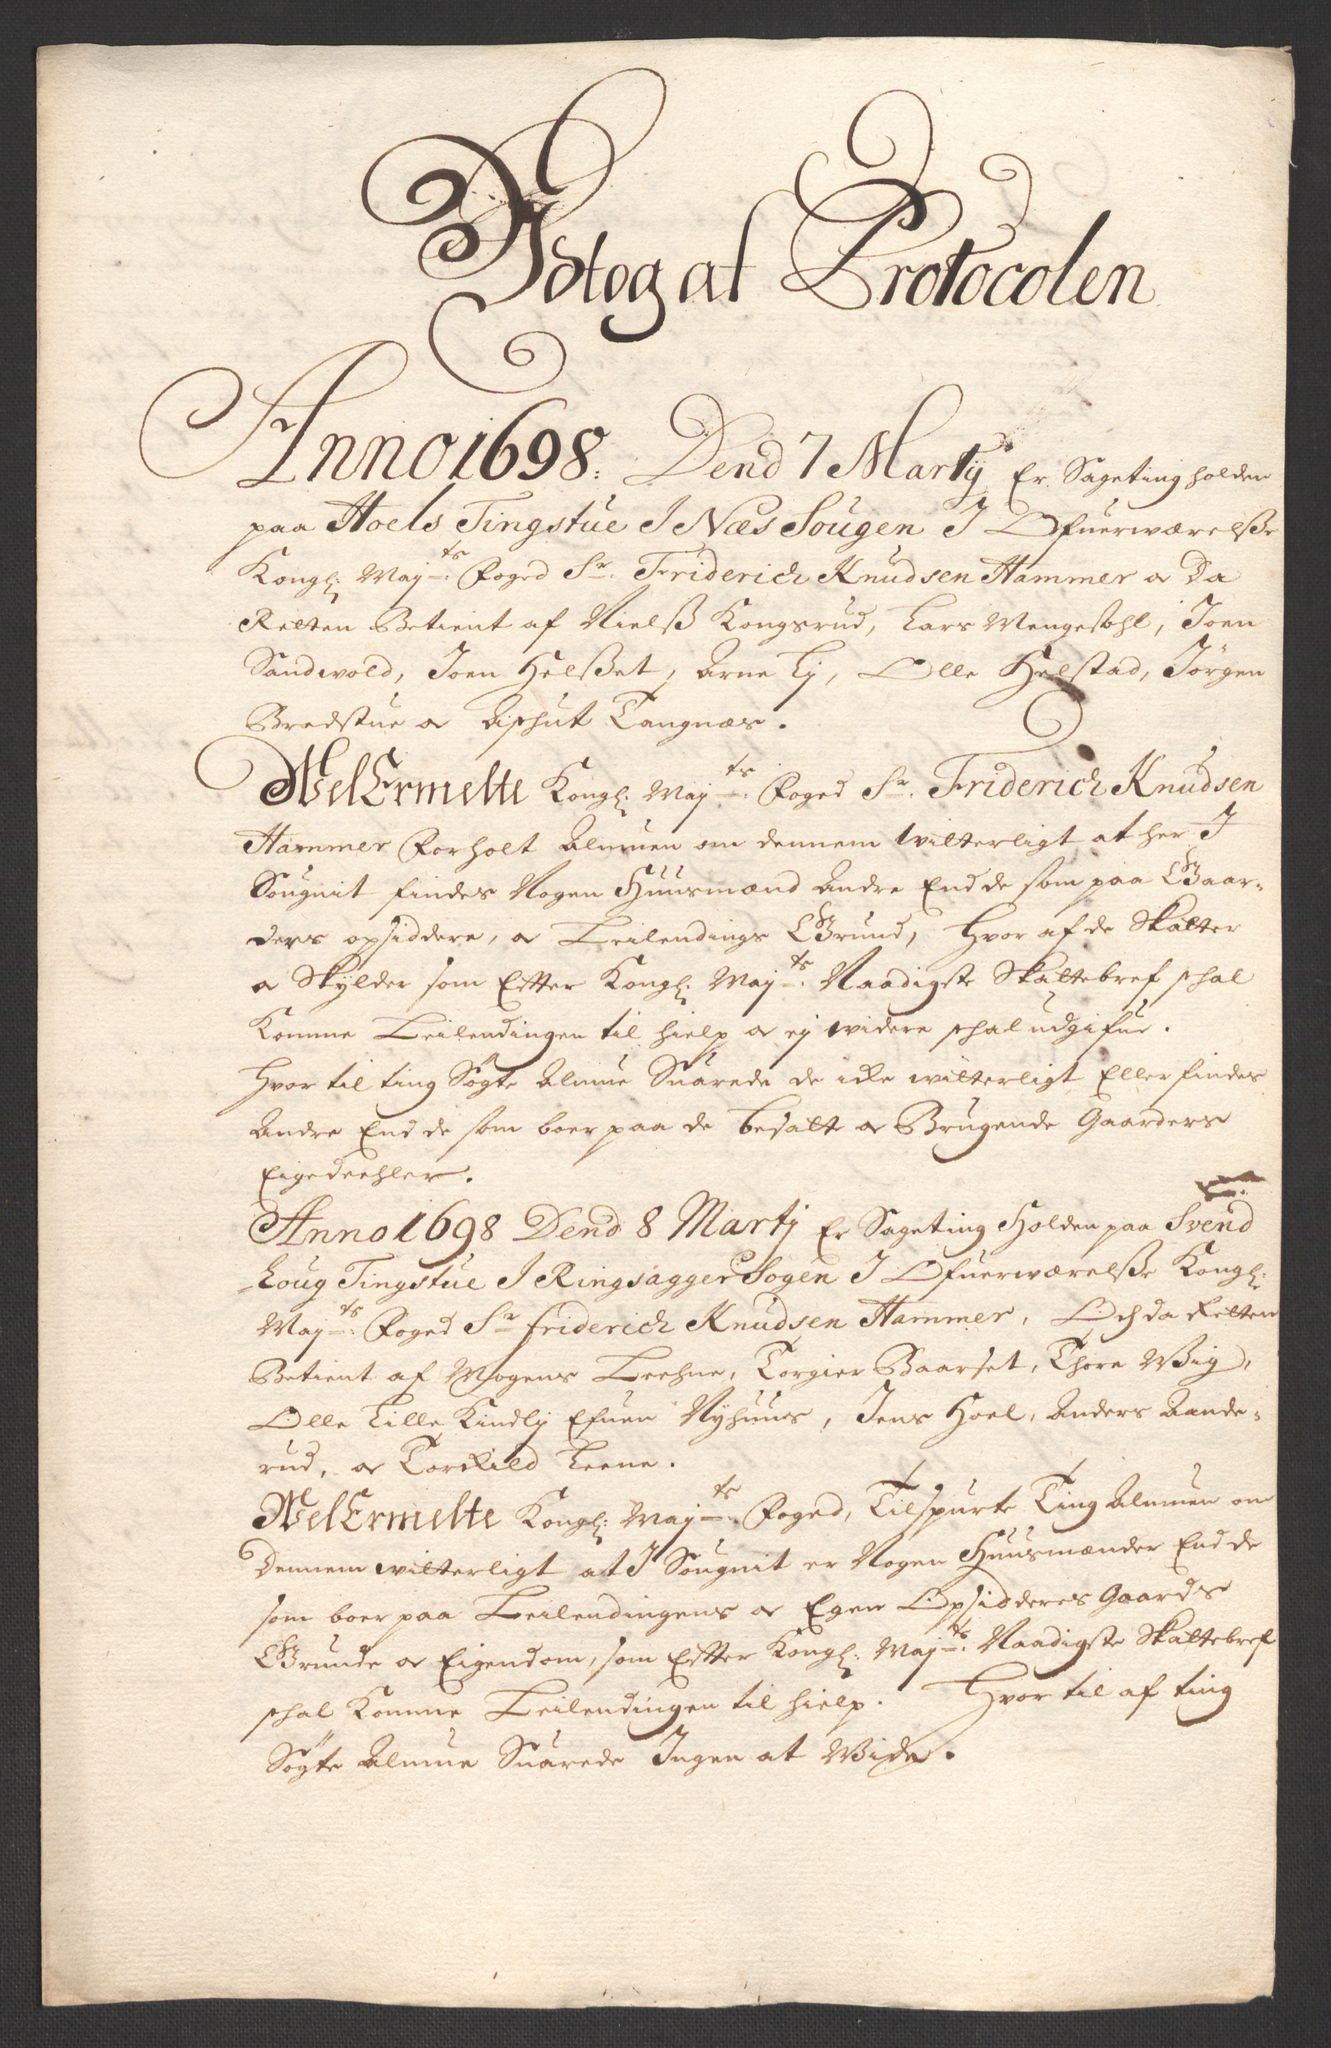 Udtog af Protocolen
Anno 1698: Dend 7 Martij Er Sageting holden
paa Hoels Tingstue I Næs Sougen I Ofuerværelsse
Kongl: Maj:ts Foged Sr. Friderich Knudsen Hammer og Da
Retten Betient af Nielss Kongsrud, Lars Mengesohl, Joen
Sandvold, Joen Helsset, Arne Lj, Olle Helstad, Jørgen
Bredstue og Tangnæs.
WelErmelte Kongl: Maj:ts Foged Sr. Friderich Knudsen
Hammer forholt Almuen om dennem witterligt at her I
Sougnit findes Nogen Huusmænd Andre End de som paa Gaar-
ders opsiddere, og Leilendings Grund, Hvor af de Skatter
og Skylder som Efter Kongl: Maj:ts Naadigste Skattebref schal
Komme Leilendingen til hielp og ej widere schal udgifue.
Hvor til ting Søgte Almue Suarede de icke witterligt Eller findes
Andre End de som boer paa de besatte og Brugende Gaarders
Eigedeehler.
Anno 1698 Dend 8 Martj Er Sageting Holden paa Svend
Loug Tingstue I Ringsagger Sogen I Ofuerværelsse Kongl:
Maj:ts Foged Sr friderich Knudsen Hammer, Och da Retten
Betient af Mogens Leehne, Torgier Baarset, Thore Wig,
Olle Lille Kindlj Efuen Nyhuus, Jens Hoel, Anders Aande-
rud, og Torckild Leene.
WelErmelte Kongl: Maj:ts Foged, Tilspurte Ting Almuen om
Dennem witterligt at I Sougnit er Nogen Huusmænder End de
som boer paa Leilendingens og Egen Opsidderes Gaards
Grunde og Eigendom, som Efter Kongl: Maj:ts Naadigste Skattebref
schal Komme Leilendingen til hielp. Hvor til af ting
Søgte Almue Suarede Ingen at Wide.